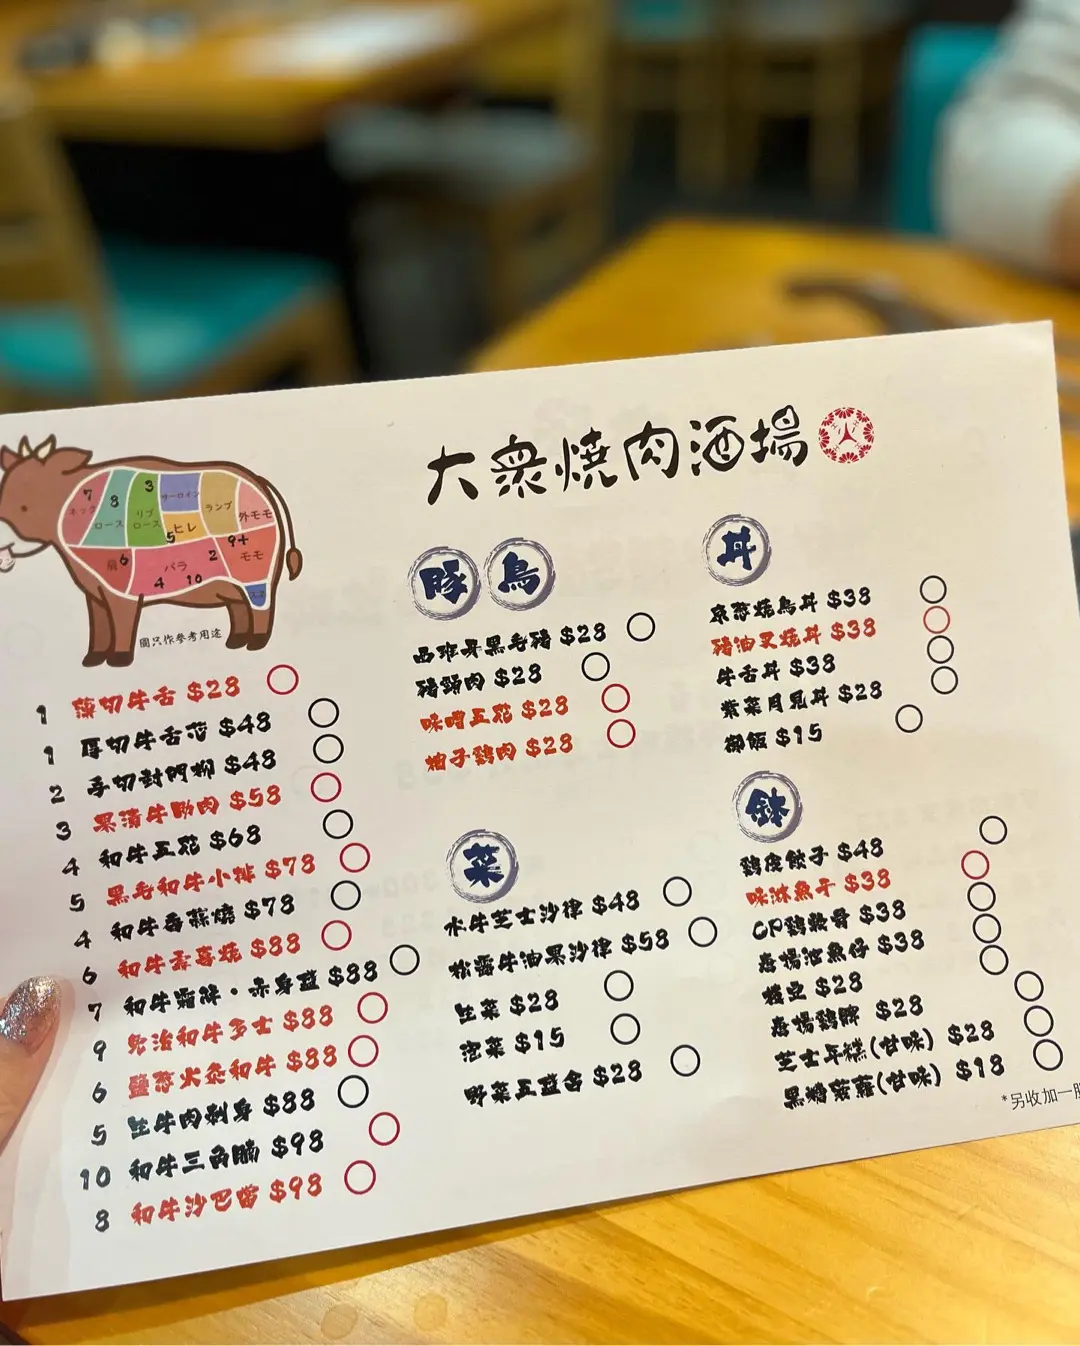 大衆燒肉酒場
7
ネック
8
ロース
3
リブ
ロース
サーロイン
ヒレ
5
ランプ
外モモ
肩
6
バラ
4
10
2
9+
モモ
スネ
圖只作參考用途
1 薄切牛舌 $28
1 厚切牛舌芯 $48
2 手切封門柳 $48
3 果漬牛肋肉 $58
4 和牛五花 $68
5 黑毛和牛小排 $78
4 和牛香蒜燒 $78
6 和牛壽喜燒 $88
7 和牛霜降・赤身盛 $88
9 免治和牛多士 $88
6 鹽蔥火灸和牛 $88
5 生牛肉刺身 $88
10 和牛三角腩 $98
8 和牛沙巴當 $98
豚 鳥
西班牙黑毛豬 $28
豬頸肉 $28
味噌五花 $28
柚子鷄肉 $28
菜
水牛芝士沙律 $48
松露牛油果沙律 $58
生菜 $28
泡菜 $15
野菜五盛合 $28
丼
京蔥燒鳥丼 $38
豬油叉燒丼 $38
牛舌丼 $38
紫菜月見丼 $28
御飯 $15
鉢
鷄皮餃子 $48
味淋魚干 $38
CP鷄軟骨 $38
唐揚池魚仔 $38
枝豆 $28
唐揚鷄髀 $28
芝士年糕(甘味) $28
黑糖菠蘿(甘味) $18
*另收加一服